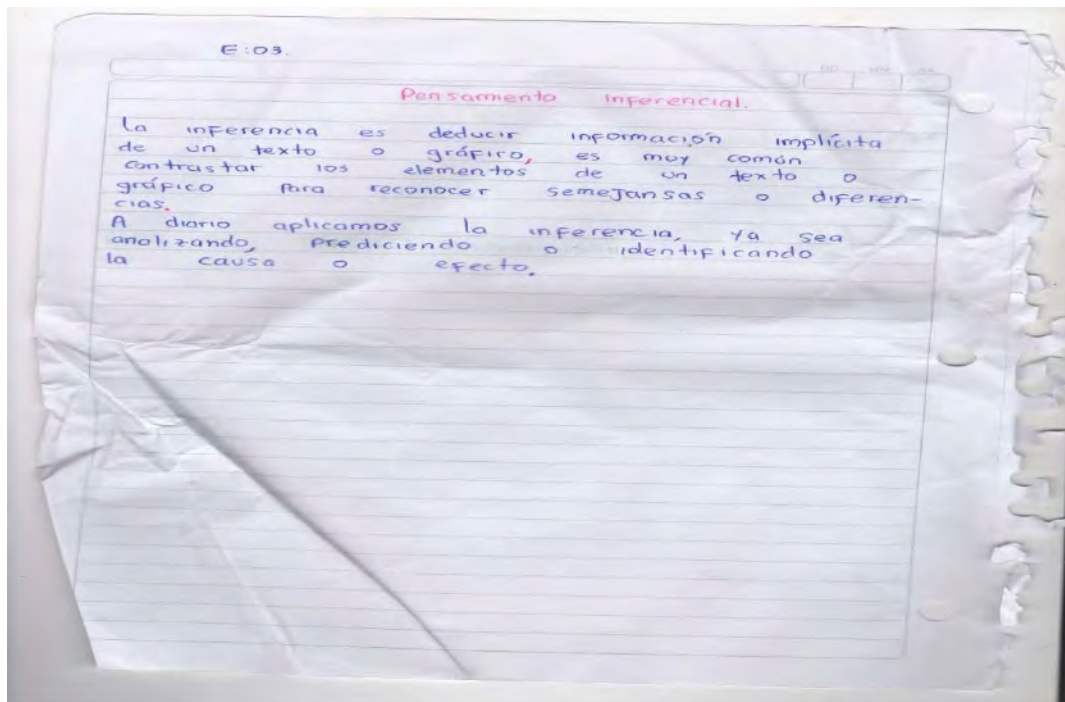 E:03.
Pensamiento inferencial.
La inferencia es deducir información implícita
de un texto o gráfico, es muy común
contrastar los elementos de un texto o
gráfico para reconocer semejansas o diferen-
cias.
A diario aplicamos la inferencia, ya sea
analizando, prediciendo o identificando
la causa o efecto.